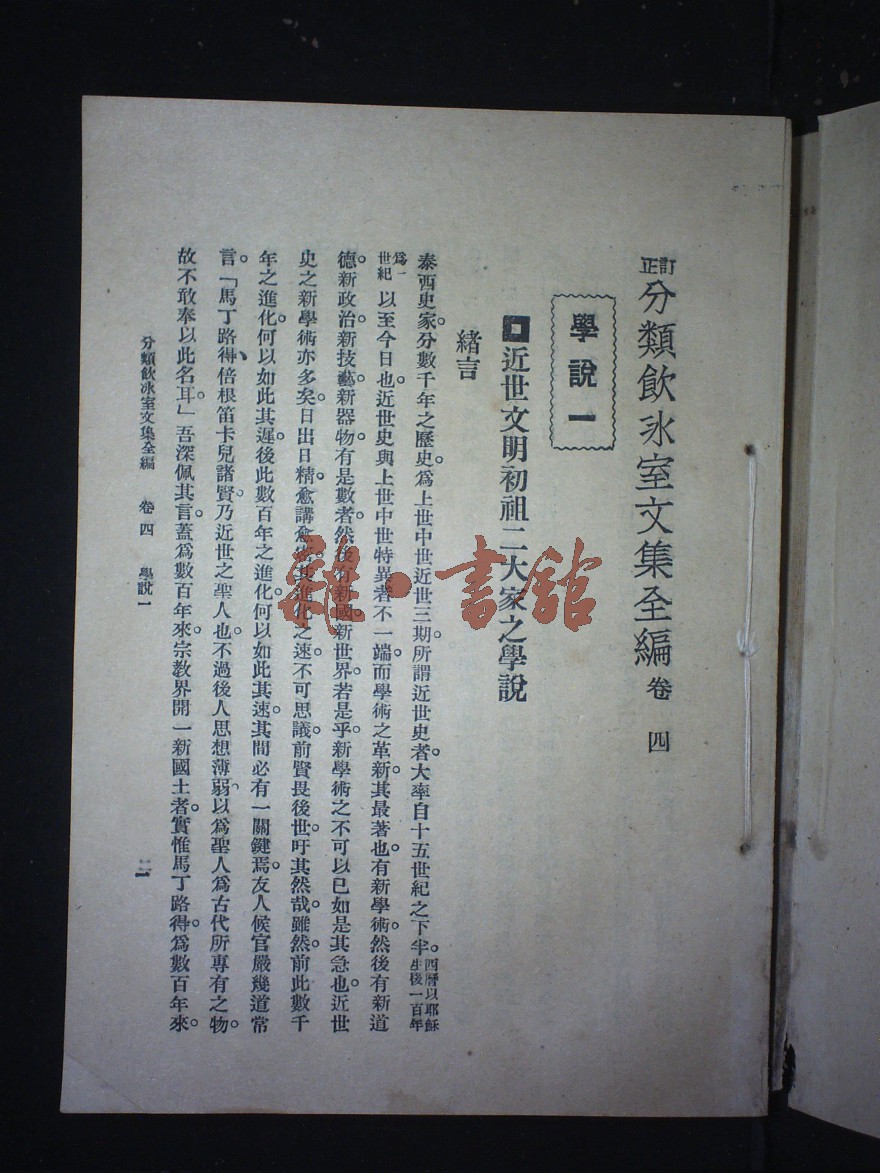 訂正分類飲冰室文集全編卷四
學說一
近世文明初祖二大家之學說
緒言
泰西史家。分數千年之歷史。爲上世中世近世三期。所謂近世史者。大率自十五世紀之下半。西曆以耶穌生後一百年
爲一世紀以至今日也。近世史與上世中世特異者不一端。而學術之革新。其最著也。有新學術。然後有新道
德新政治新技藝新器物。有是數者。然後有新國新世界。若是乎。新學術之不可以已如是其急也。近世
史之新學術亦多矣。日出日精。愈講愈密。其進化之速。不可思議。前賢畏後世。吁其然哉。雖然。前此數千
年之進化。何以如此其遲。後此數百年之進化。何以如此其速。其間必有一關鍵焉。友人候官嚴幾道常
言。「馬丁路得、倍根笛卡兒諸賢。乃近世之聖人也。不過後人思想薄弱。以爲聖人爲古代所專有之物。
故不敢奉以此名耳。」吾深佩其言。蓋爲數百年來宗教界開一新國土者。實惟馬丁路得。爲數百年來。
分類飲冰室文集全編 卷四 學說一
龍·書館